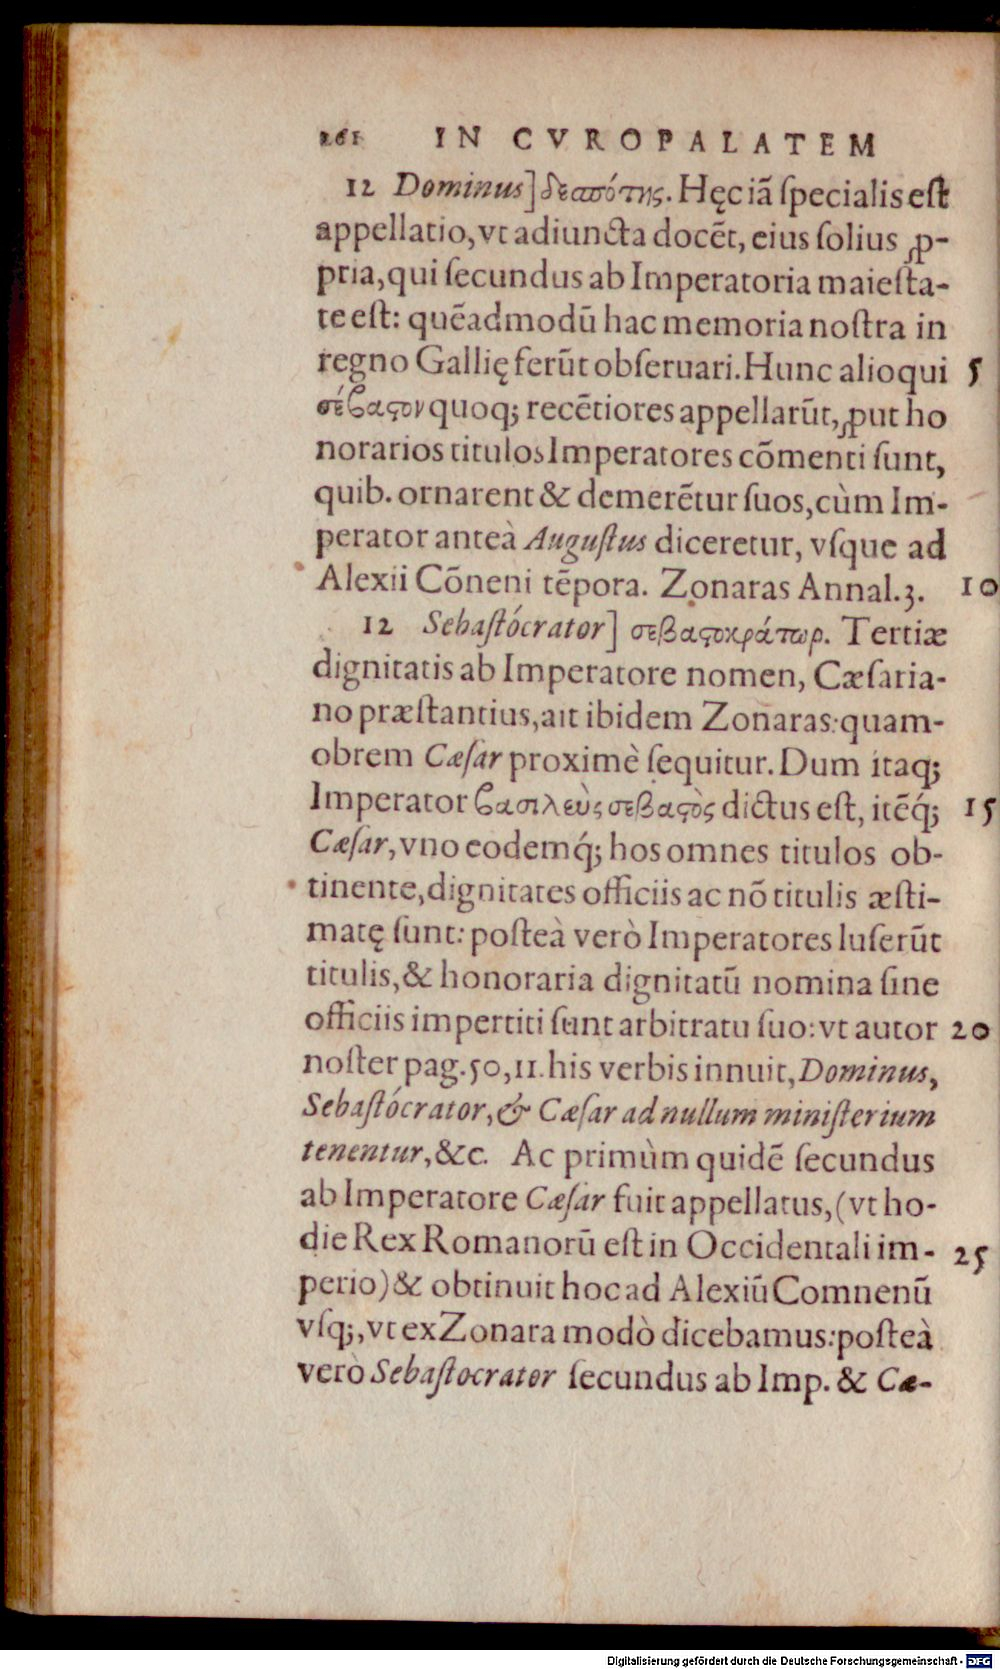 261 IN CVROPALATEM
12 Dominus] δεσπότης. Hęc iã ſpecialis eſt
appellatio, vt adiuncta docēt, eius ſolius ꝓ-
pria, qui ſecundus ab Imperatoria maieſta-
te eſt: quēadmodũ hac memoria noſtra in
regno Gallię ferũt obſeruari. Hunc alioqui 5
σέβαϛον quoq; recētiores appellarũt, ꝓut ho
norarios titulos Imperatores cõmenti ſunt,
quib. ornarent & demerētur ſuos, cùm Im-
perator anteà Auguſtus diceretur, vſque ad
Alexii Cõneni tēpora. Zonaras Annal. 3. 10
12 Sebaſtócrator] σεβαϛοκράτωρ. Tertiæ
dignitatis ab Imperatore nomen, Cæſaria-
no præſtantius, ait ibidem Zonaras: quam-
obrem Cæſar proximè ſequitur. Dum itaq;
Imperator βασιλεὺς σεβαϛὸς dictus eſt, itēq́; 15
Cæſar, vno eodemq́; hos omnes titulos ob-
tinente, dignitates officiis ac nõ titulis æſti-
matę ſunt: poſteà verò Imperatores luſerũt
titulis, & honoraria dignitatũ nomina ſine
officiis impertiti ſunt arbitratu ſuo: vt autor 20
noſter pag. 50, 11. his verbis innuit, Dominus,
Sebaſtócrator, & Cæſar ad nullum miniſterium
tenentur, &c. Ac primùm quidē ſecundus
ab Imperatore Cæſar fuit appellatus, (vt ho-
die Rex Romanorũ eſt in Occidentali im- 25
perio) & obtinuit hoc ad Alexiũ Comnenũ
vſq;, vt ex Zonara modò dicebamus: poſteà
verò Sebaſtocrator ſecundus ab Imp. & Cæ-
Digitalisierung gefördert durch die Deutsche Forschungsgemeinschaft - DFG